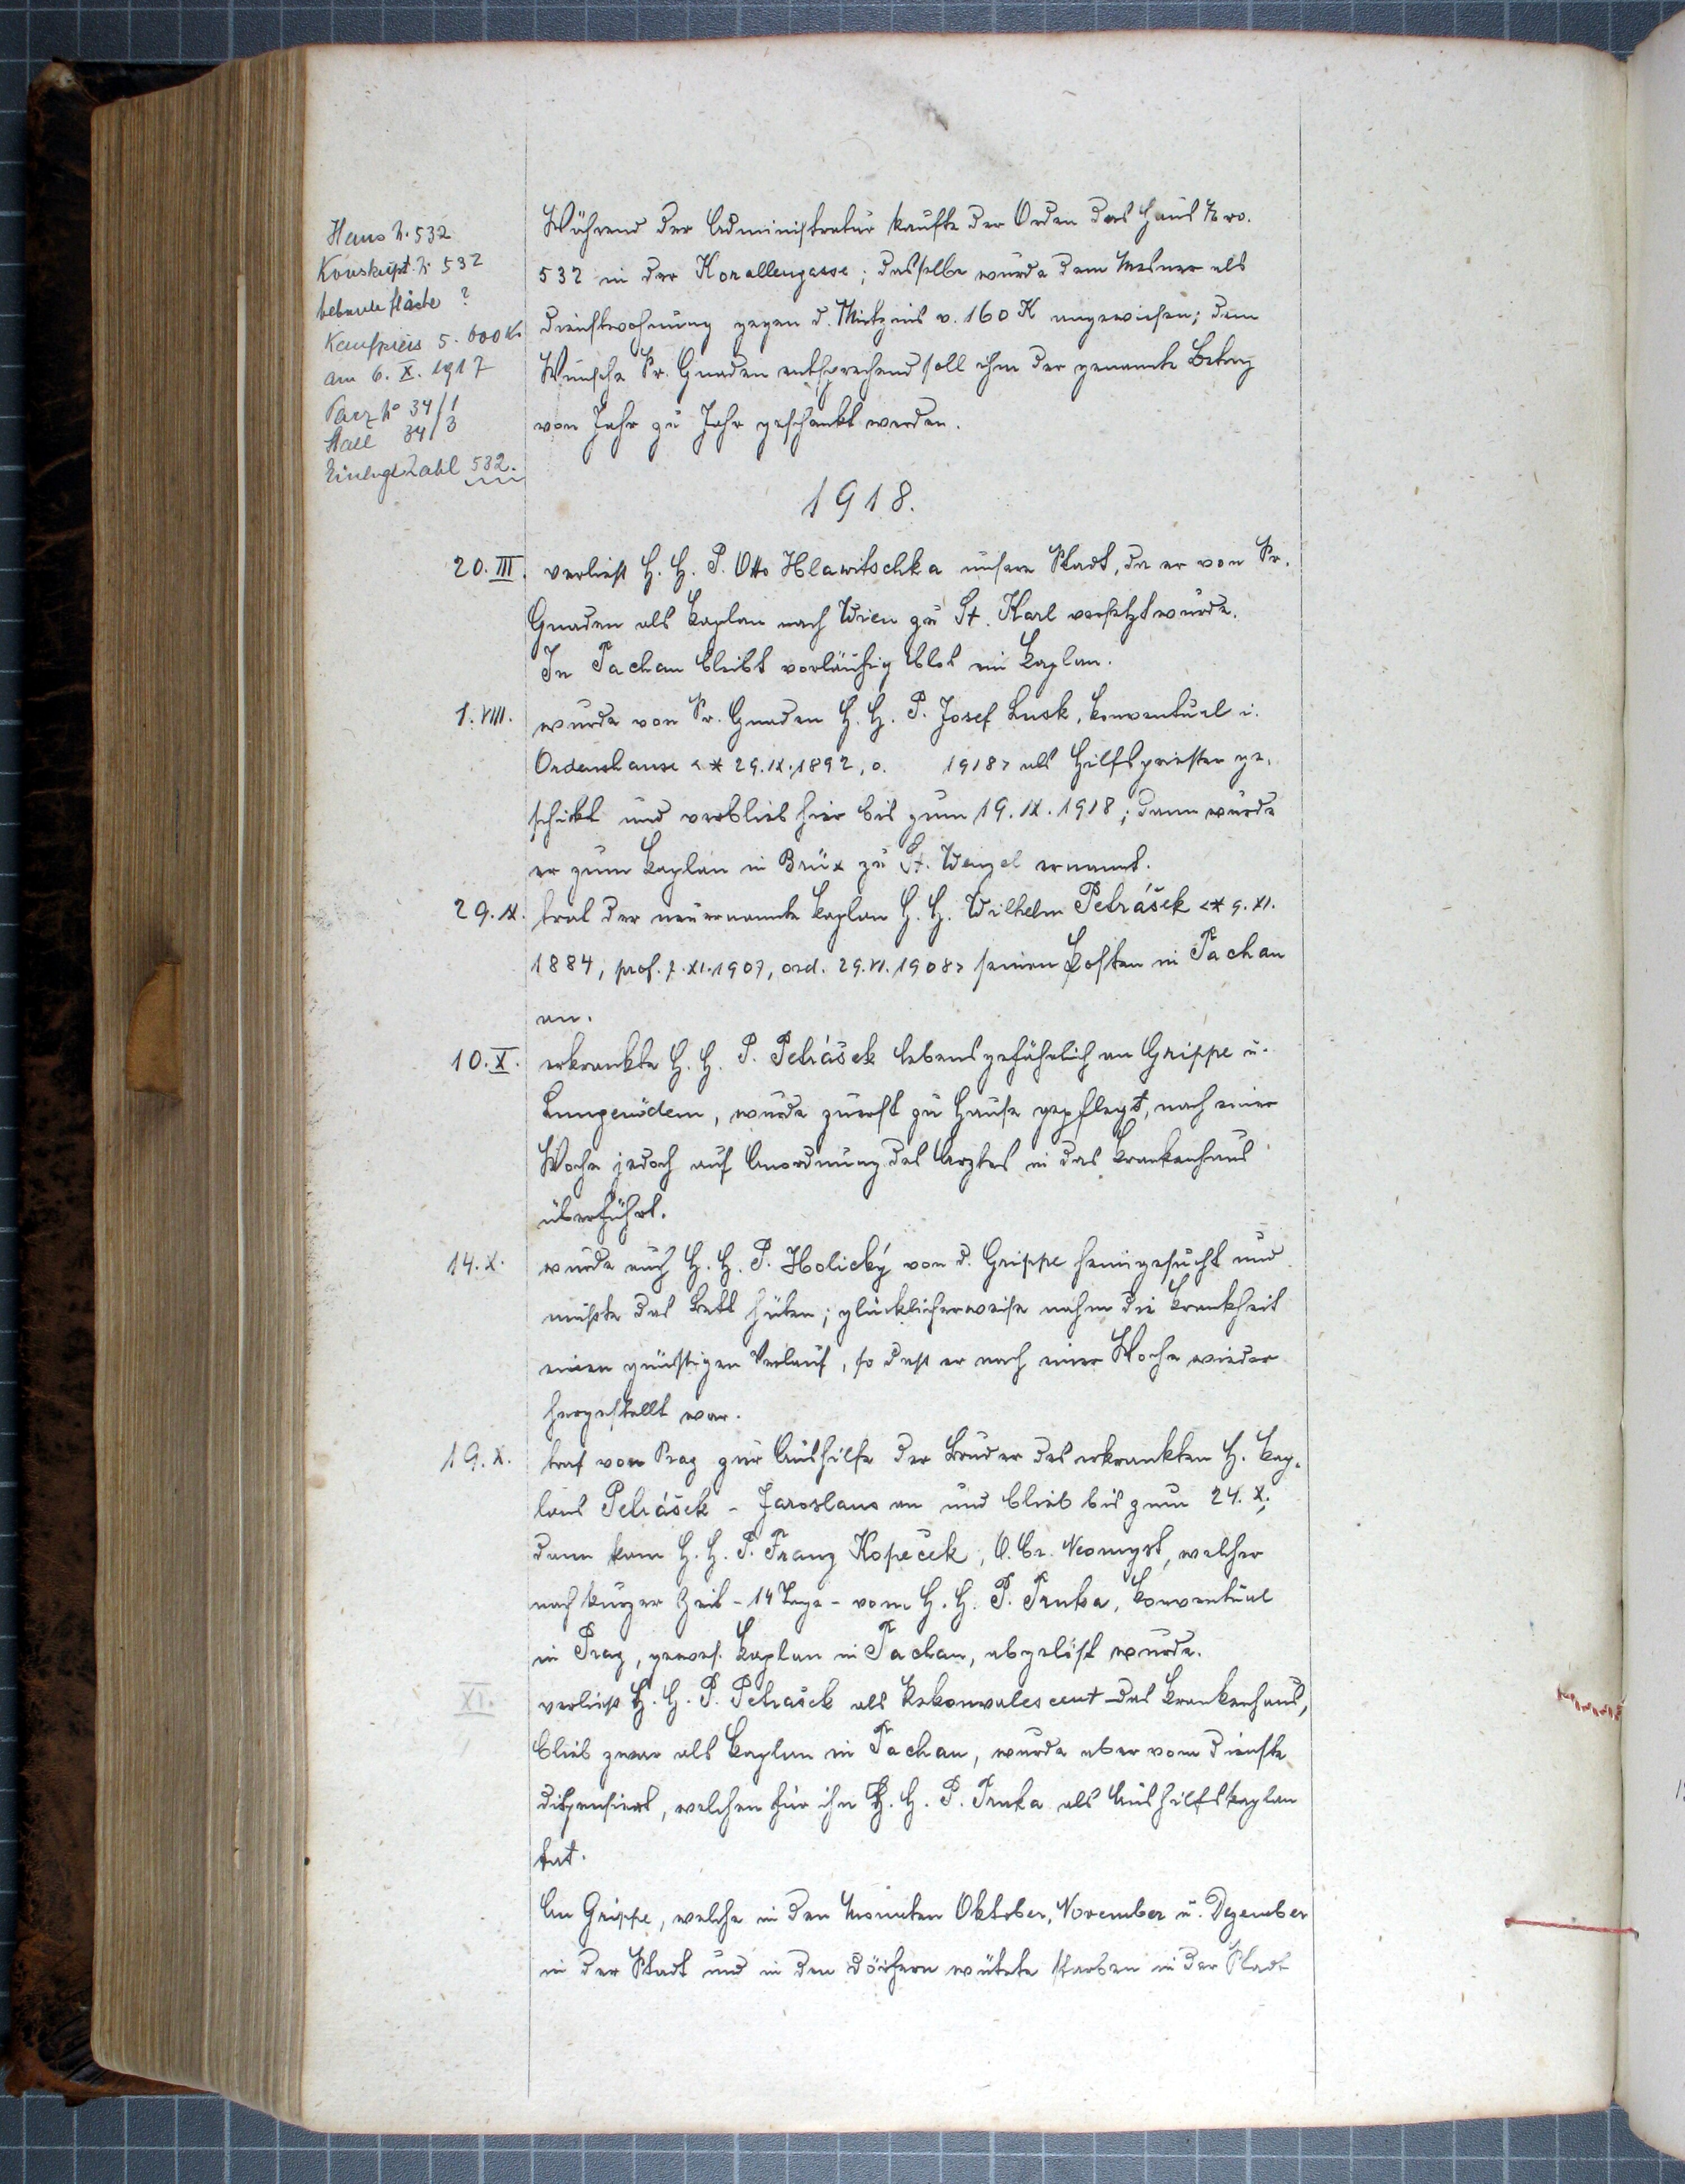 Haus N. 532
Konskript. N. 532
bebaute Fläche ?
Kaufpreis 5.600 K
am 6. X. 1917
Parz. No 34/1
Stall 34/3
Einlage Zahl 532.
Während der Administratur kaufte der Orden das Haus Nro.
532 in der Korallengasse; dasselbe wurde dem Mesner als
Dienstwohnung gegen d. Mietzins v. 160 K angewiesen; dem
Wunsche Sr. Gnaden entsprechend soll ihm der genannte Betrag
von Jahr zu Jahr geschenkt werden.
1918.
20. III. verließ H. H. P. Otto Hlawitschka unsere Stadt, da er von Sr.
Gnaden als Kaplan nach Wien zu St. Karl versetzt wurde.
In Tachau bleibt vorläufig blos ein Kaplan.
1. VIII. wurde von Sr. Gnaden H. H. P. Josef Lusk, Konventual i.
Ordenshause <* 29. IX. 1892, o. 1918> als Hilfspriester ge-
schickt und verblieb hier bis zum 19. IX. 1918; dann wurde
er zum Kaplan in Brüx zu St. Wenzel ernannt.
29. IX. trat der neuernannte Kaplan H. H. Wilhelm Petrášek <* 9. XI.
1884, prof. 7. XI. 1907, ord. 29. VI. 1908> seinen Posten in Tachau
an.
10. X. erkrankte H. H. P. Petrášek lebensgefährlich an Grippe u.
Lungenödem, wurde zuerst zu Hause gepflegt, nach einer
Woche jedoch auf Anordnung des Arztes in das Krankenhaus
überführt.
14. X. wurde auch H. H. P. Holický von d. Grippe heimgesucht und
mußte das Bett hüten; glücklicherweise nahm die Krankheit
einen günstigen Verlauf, so daß er nach einer Woche wieder
hergestellt war.
19. X. traf von Prag zur Aushilfe der Bruder des erkrankten H. Kap-
lans Petrášek - Jaroslaus an und blieb bis zum 24. X.;
dann kam H. H. P. Franz Kopeček, O. Cr. Neomyst, welcher
nach kurzer Zeit - 14 Tage - vom H. H. P. Truksa, Konventual
in Prag, gewes. Kaplan in Tachau, abgelöst wurde.
XI. verließ H. H. P. Petrašek als Rekonvalescent das Krankenhaus,
blieb zwar als Kaplan in Tachau, wurde aber vom Dienste
dispensiert, welchen für ihn H. H. P. Truksa als Aushilfskaplan
tat.
An Grippe, welche in den Monaten Oktober, November u. Dezember
in der Stadt und in den Dörfern wütete starben in der Stadt